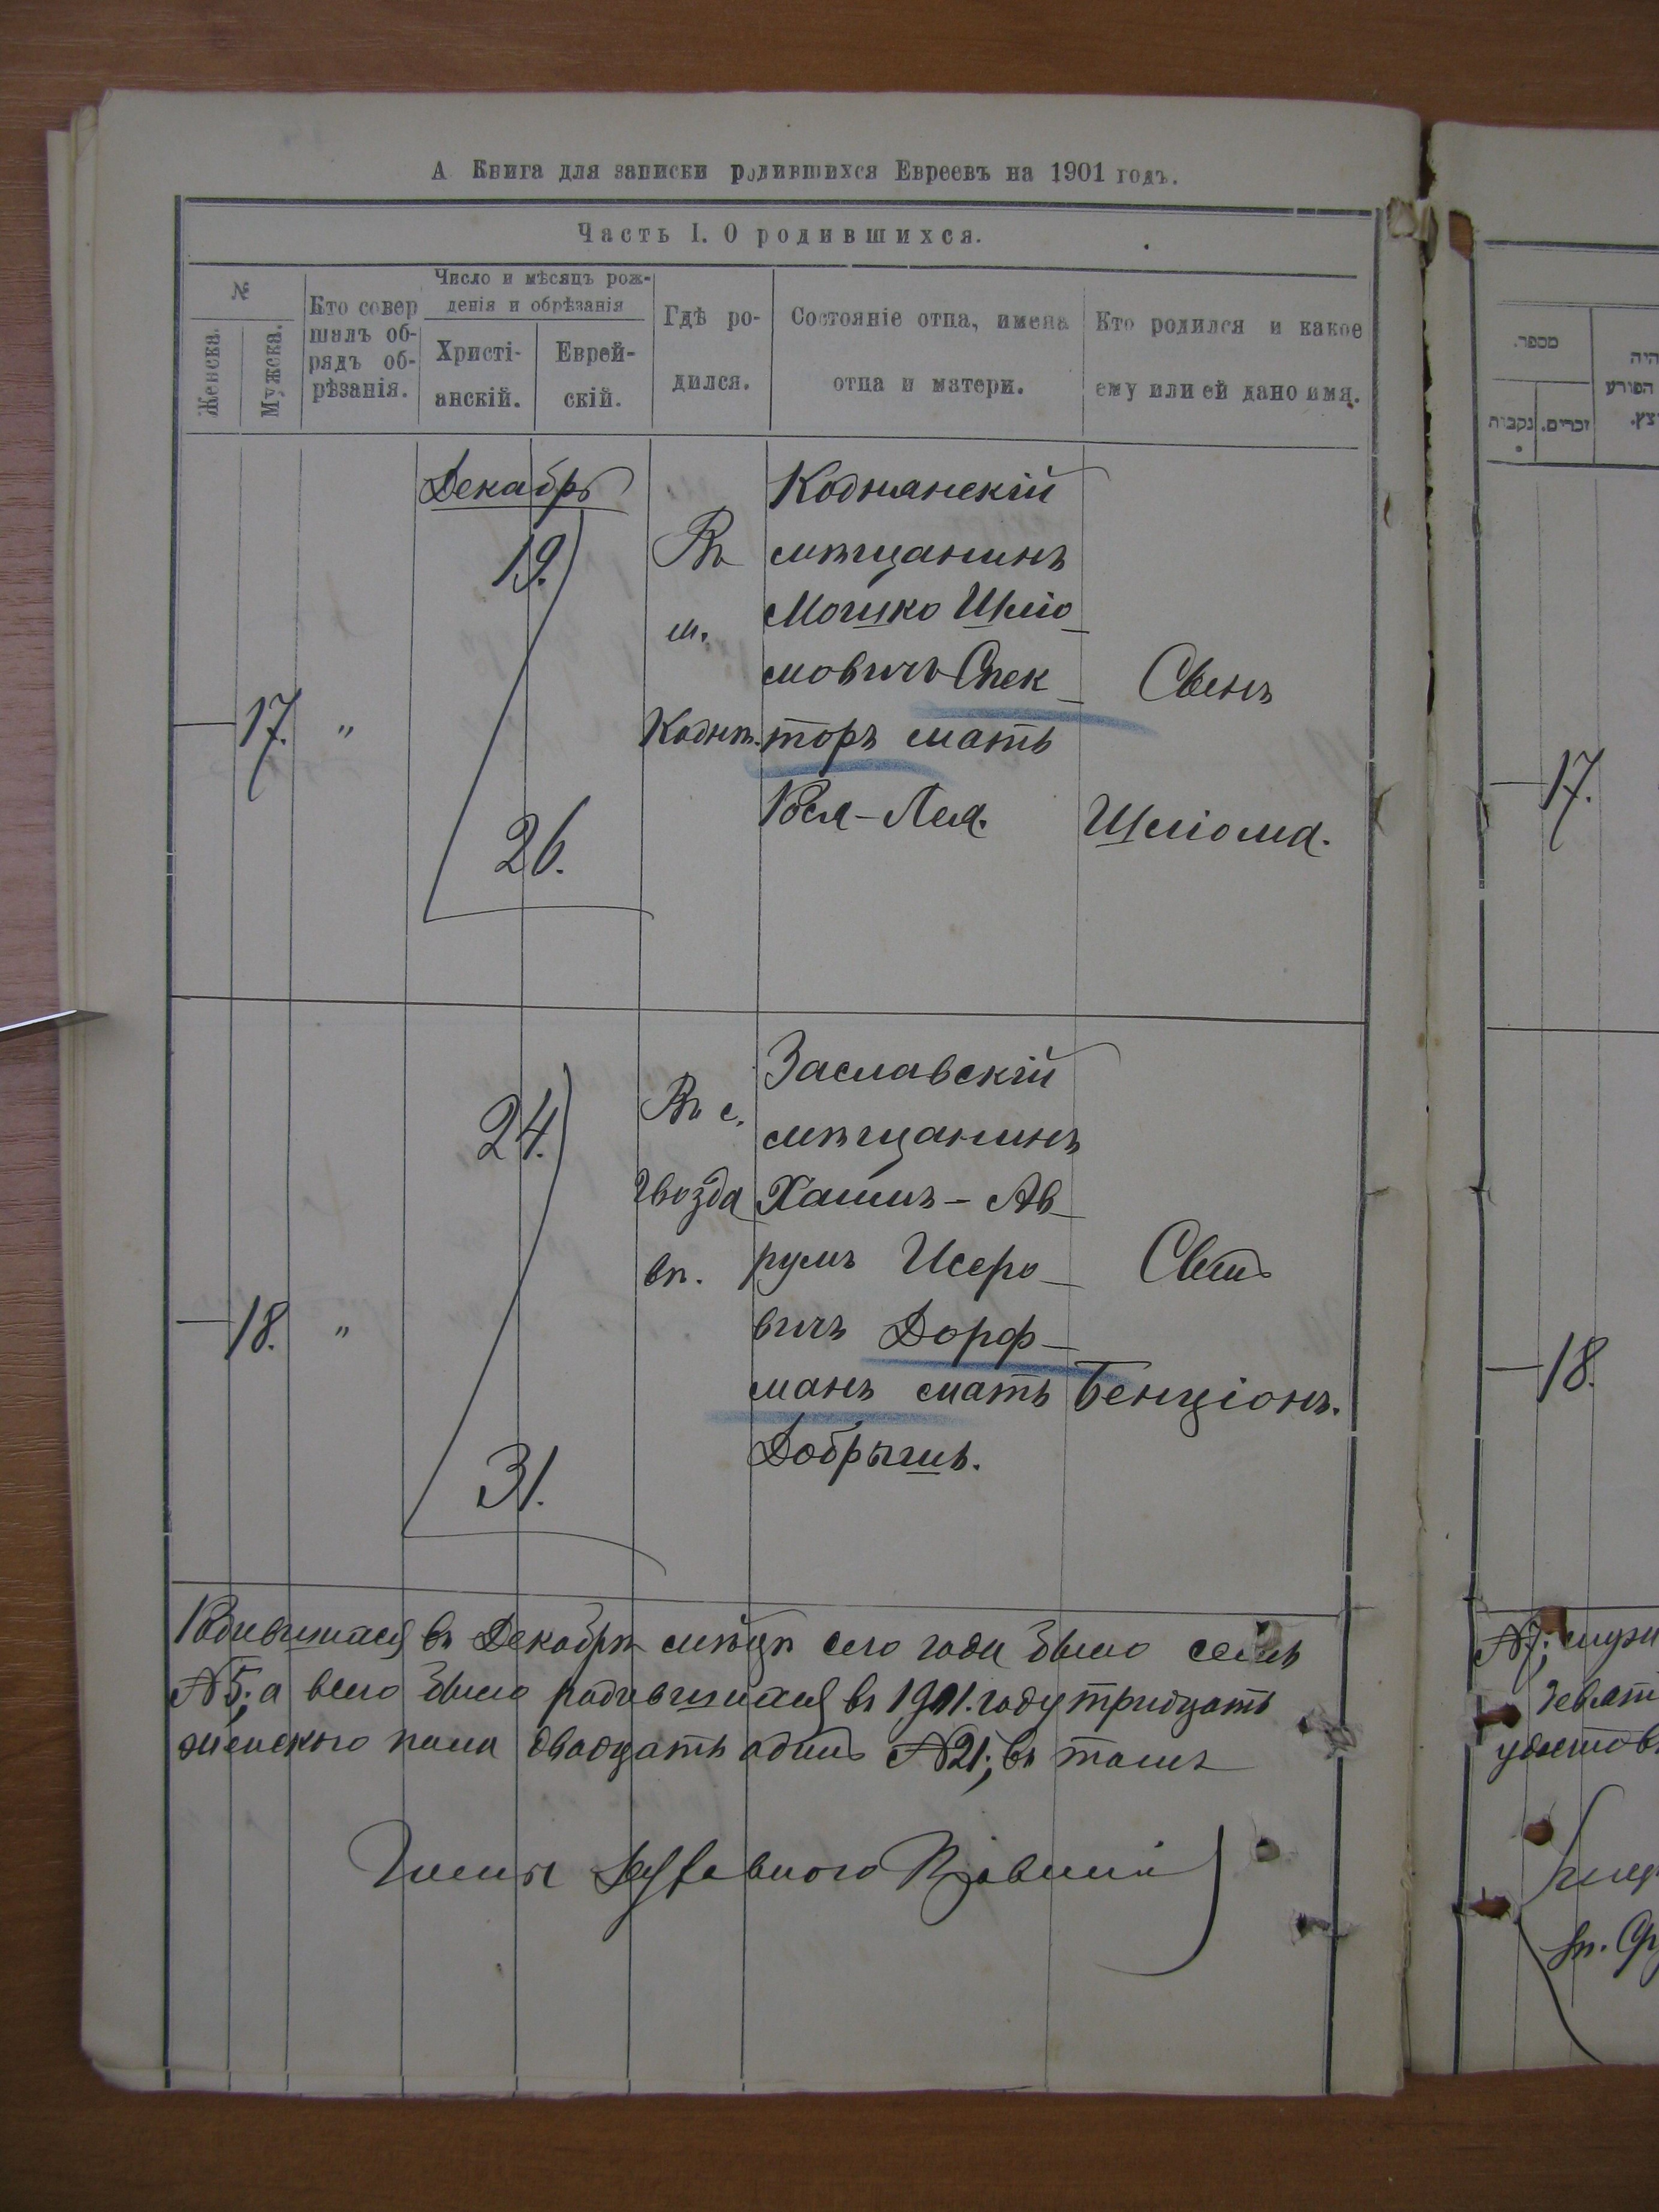 А Книга для записки родившихся Евреевъ на 1901 годъ.
Часть I. О родившихся.
№
Женска.
Мужска.
Кто совер
шалъ об-
рядъ об-
рѣзанія.
Число и мѣсяцъ рож-
денія и обрѣзанія
Христі-
анскій.
Еврей-
скій.
Гдѣ ро-
дился.
Состояніе отца, имена
отца и матери.
Кто родился и какое
ему или ей дано имя.
Декабрь
17.
"
19.
26.
Въ
м.
Коднѣ.
Коднянскій
мѣщанинъ
Мошко Шліо
мовичъ Спек
торъ мать
Рося-Лея.
Сынъ
Шліома.
18.
"
24.
31.
Въ с.
Гвозда
вѣ.
Заславскій
мѣщанинъ
Хаимъ-Ав
румъ Исеро
вичъ Дорф
манъ мать
Добрышъ.
Сынъ
Бенціонъ.
Родившихся въ Декабрѣ мѣсяцѣ сего года было семь
№5; а всего было родившихся въ 1901 году тридцать
женского пола двадцать одинъ №21; въ томъ
Члены Духовного Правленія
מספר.
נקבות
זכרים.
היה
הפורע
17.
18.
№7;